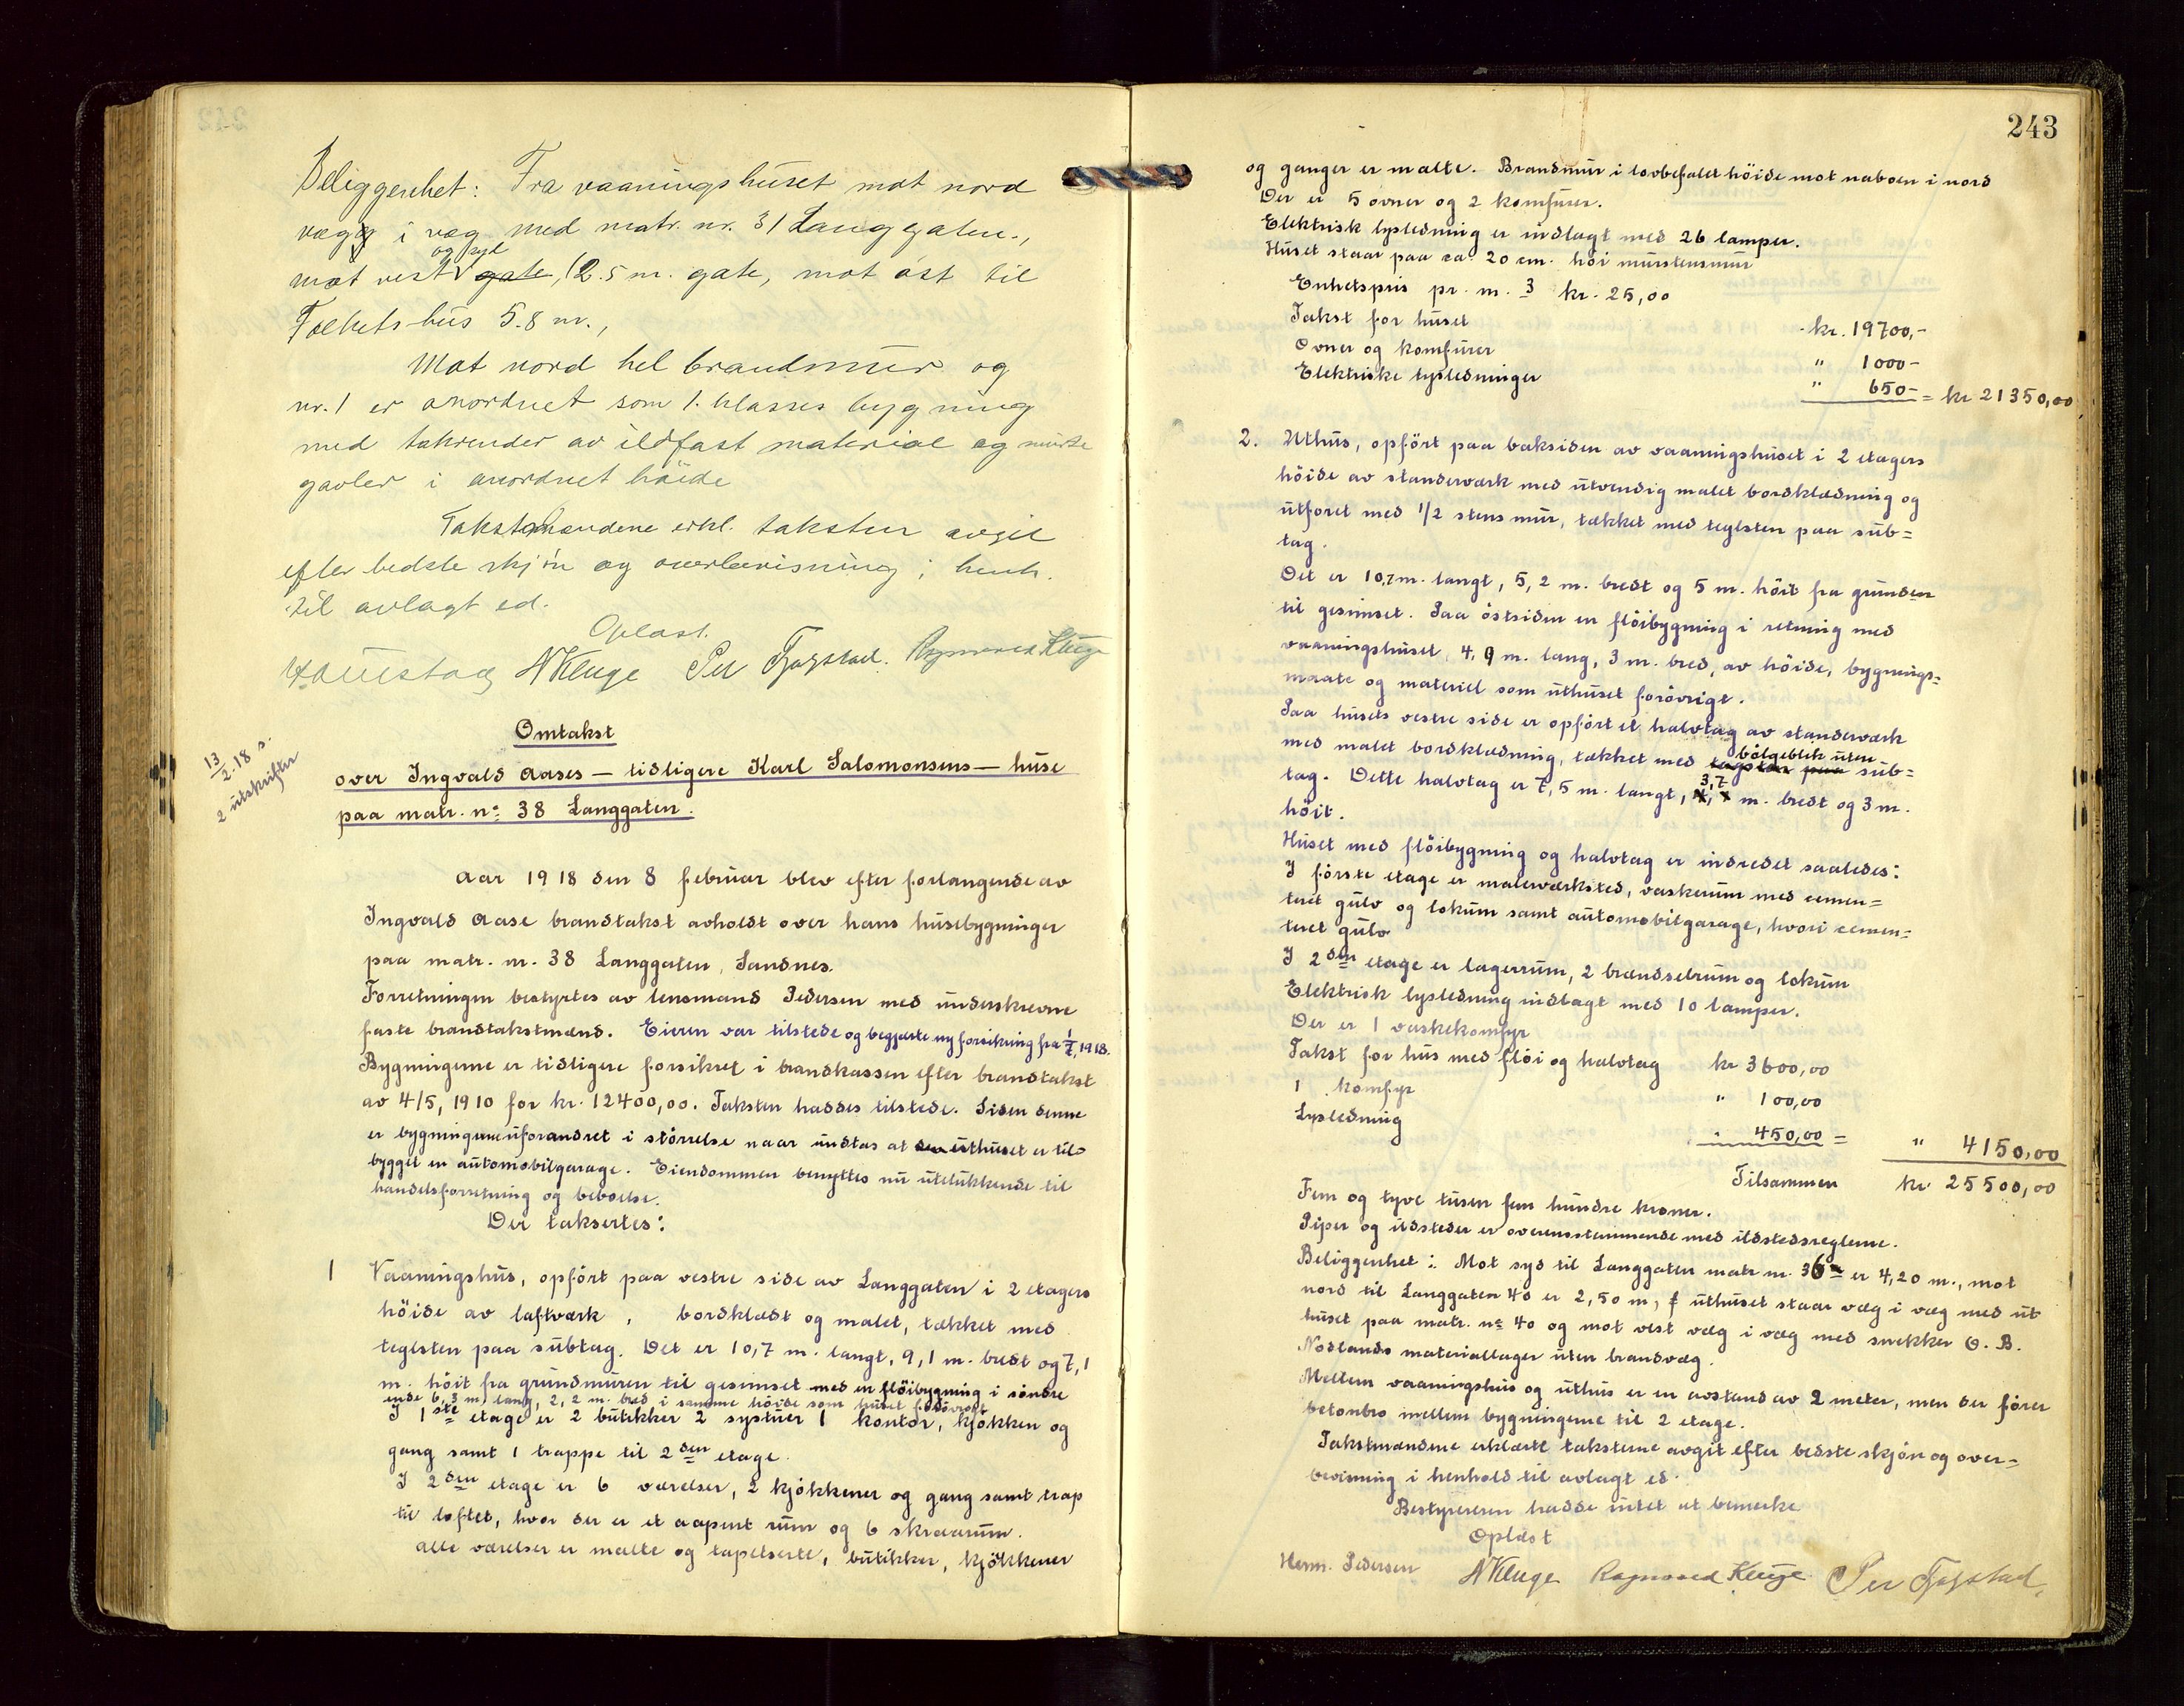 Beliggenhet: Fra vaaningshuset mot nord
væg i væg med matr. nr. 31 Langgaten.,
og syd
mot vest gate, 12.5 m. gate, mot øst til
Folkets hus 5.8 m.,
Mot nord hel brandmur og
nr. 1 er anordnet som 1. klasses bygning
med takrender av ildfast materiale og murte
gavler i anordnet höide
Takstmændene erkl. taksten avgit
efter bedste skjön og overbevisning i henh.
til avlagt ed.
Oplæst.
N Kluge Per Fjogstad. Rasmus Kluge
13/2.18 s.
2 utskrifter
Omtakst
over Ingvald Aases – tidligere Karl Salomonsens – huse
paa matr. no 38 Langgaten.
Aar 1918 den 8 februar blev efter forlangende av
Ingvald Aase brandtakst avholdt over hans husebygninger
paa matr. nr. 38 Langgaten, Sandnes.
Forretningen bestyrtes av lensmand Pedersen med underskrevne
faste brandtakstmænd. Eieren var tilstede og begjærte ny forsikring fra 1/2, 1918.
Bygningerne er tidligere forsikret i brandkassen efter brandtakst
av 4/5, 1910 for kr. 12400,00. Taksten haddes tilstede. Siden denne
er bygningerne uforandret i störrelse naar undtas at uthuset er til-
bygget en automobilgarage. Eiendommen benyttes nu utelukkende til
handelsforretning og beboelse.
Der taksertes:
1 Vaaningshus, opfört paa vestre side av Langgaten i 2 etagers
höide av laftværk, bordklædt og malet, tækket med
teglsten paa subtag. Det er 10,7 m. langt, 9,1 m. bredt og 7,1
m. höit fra grundmuren til gesimset med en flöibygning i söndre
ende 6,3 m. lang, 2,2 m. bred i samme höide som huset forövrigt
I 1ste etage er 2 butikker 2 systuer 1 kontor, kjökken og
gang samt 1 trappe til 2den etage.
I 2den etage er 6 værelser, 2 kjökkener og gang samt trap
til loftet, hvor der er et aapent rum og 6 skraarum.
Alle værelser er malte og tapetserte, butikker, kjökkener
243
og ganger er malte. Brandmur i lovbefalet höide mot naboen i nord
Der er 5 ovner og 2 komfurer.
Elektrisk lysledning er indlagt med 26 lamper.
Huset staar paa ca 20 cm. höi murstensmur
Enhetspris pr. m. 3 kr. 25,00
Takst for huset kr. 19700,-
Ovner og komfurer " 1000-
Elektriske lysledninger " 650- = kr 21350,00
2. Uthus, opfört paa baksiden av vaaningshuset i 2 etagers
höide av standerværk med utvendig malet bordklædning og
utforet med 1/2 stens mur, tækket med teglsten paa sub=
tag.
Det er 10,7 m. langt, 5,2 m. bredt og 5 m. höit fra grunden
til gesimset. Paa östsiden en flöibygning i retning med
vaaningshuset, 4,9 m. lang, 3 m. bred, av höide, bygnings=
maate og materiel som uthuset forövrigt.
Paa husets vestre side er opfört et halvtag av standerværk
bölgeblik uten
med malet bordklædning, tækket med teglsten paa sub=
3,7
tag. Dette halvtag er 7,5 m. langt, m. bredt og 3 m.
höit.
Huset med flöibygning og halvtag er indredet saaledes:
I förste etage er malerværksted, vaskerum med cemen=
teret gulv og lokum samt automobilgarage, hvori cemen=
teret gulv
I 2den etage er lagerrum, 2 brændselrum og lokum
Elektrisk lysledning indlagt med 10 lamper.
Der er 1 vaskekomfyr
Takst for hus med flöi og halvtag kr 3600,00
1 komfyr " 100,00
Lysledning " 450,00 = " 4150,00
Tilsammen kr 25500,00
Fem og tyve tusen fem hundre kroner.
Piper og ildsteder er overensstemmende med ildstedsreglerne.
Beliggenhet: Mot syd til Langgaten matr nr. 36 er 4,20 m., mot
nord til Langgaten 40 er 2,50 m, uthuset staar væg i væg med ut
huset paa matr. no 40 og mot vest væg i væg med snekker O. B.
Nodlands materiallager uten brandvæg.
Mellem vaaningshus og uthus er en avstand av 2 meter, men der förer
betonbro mellem bygningerne til 2 etage.
Takstmændene erklærte taksterne avgit efter bedste skjön og over=
bevisning i henhold til avlagt ed.
Bestyreren hadde intet at bemerke
Oplæst
Herm. Pedersen N Kluge Rasmus Kluge Per Fjogstad.